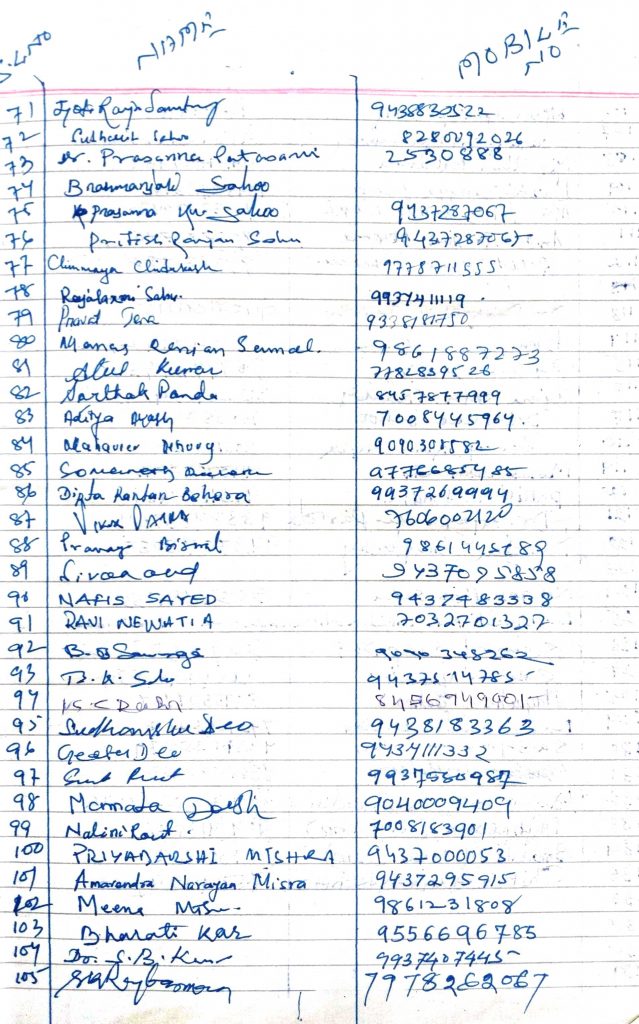 S.L NO NAME MOBILE NO
71 Jyoti Ranjan 9438830522
72 Sahu 8280092026
73 Dr. Prasanna Patasani 2530888
74 Sahoo
75 Prasanna Kr. Sahoo 9437287067
76 Pritish Ranjan Sahu 9437287065
77 Chinmaya 9778711555
78 Rajalaxmi Sahu. 9937411119.
79 Pravat Jena 9338181750
80 Manas Ranjan Samal. 9861887273
81 Atul Kumar 7782839526
82 Sarthak Panda 8457877999
83 Aditya 7008445964.
84 9090305582
85
86 Dipta Ranjan Behera 9937269994
87 7606002120
88 Pranay Biswal
89 9437095858
90 NAFIS SAYED 9437483338
91 RAVI NEWATIA 7032701327
92 9090348262
93 B.K. Sahu 9437514785
94
95 Sudhanshu Deo 9438183363
96 Geeta Dee 9434111332
97 9937580987
98 Mamata Dash 9040009409
99 Nalini Rout. 7008183901
100 PRIYADARSHI MISHRA 9437000053.
101 Amarendra Narayan Misra 9437295915
102 Meena 9861231808
103 Bharati Kar 9556696785
104 Dr. S.B. Kar 9937407445
105 7978262067